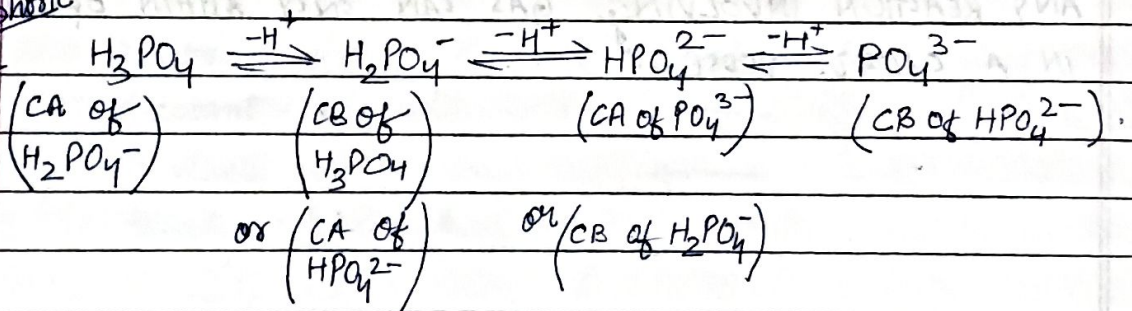 H₃PO₄ ⇌ H₂PO₄⁻ ⇌ HPO₄²⁻ ⇌ PO₄³⁻
-H⁺ -H⁺ -H⁺
(CA of H₂PO₄⁻) (CB of H₃PO₄) (CA of PO₄³⁻) (CB of HPO₄²⁻).
or (CA of HPO₄²⁻) or (CB of H₂PO₄⁻)